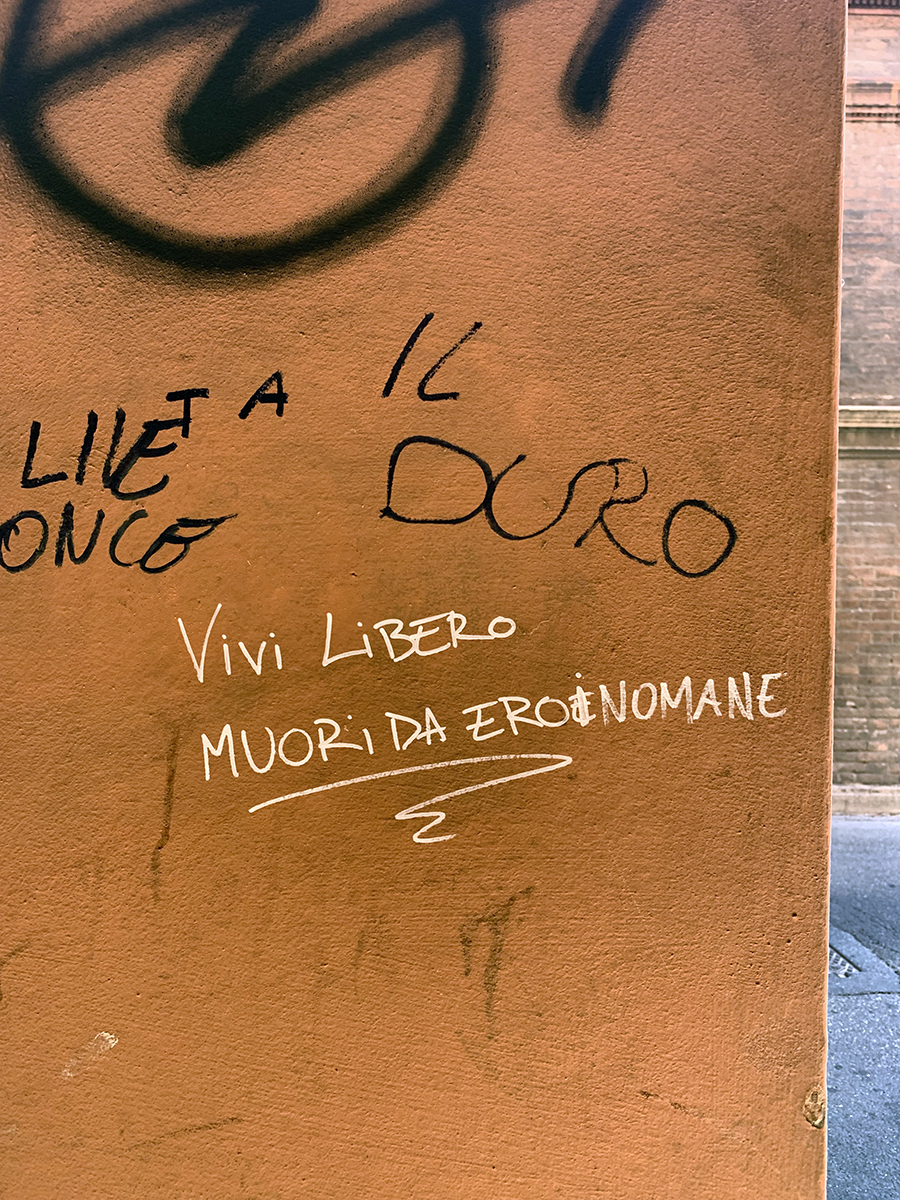 IL
LIVET A
ONCE
DURO
Vivi LiBERO
MUORi DA EROiNOMANE